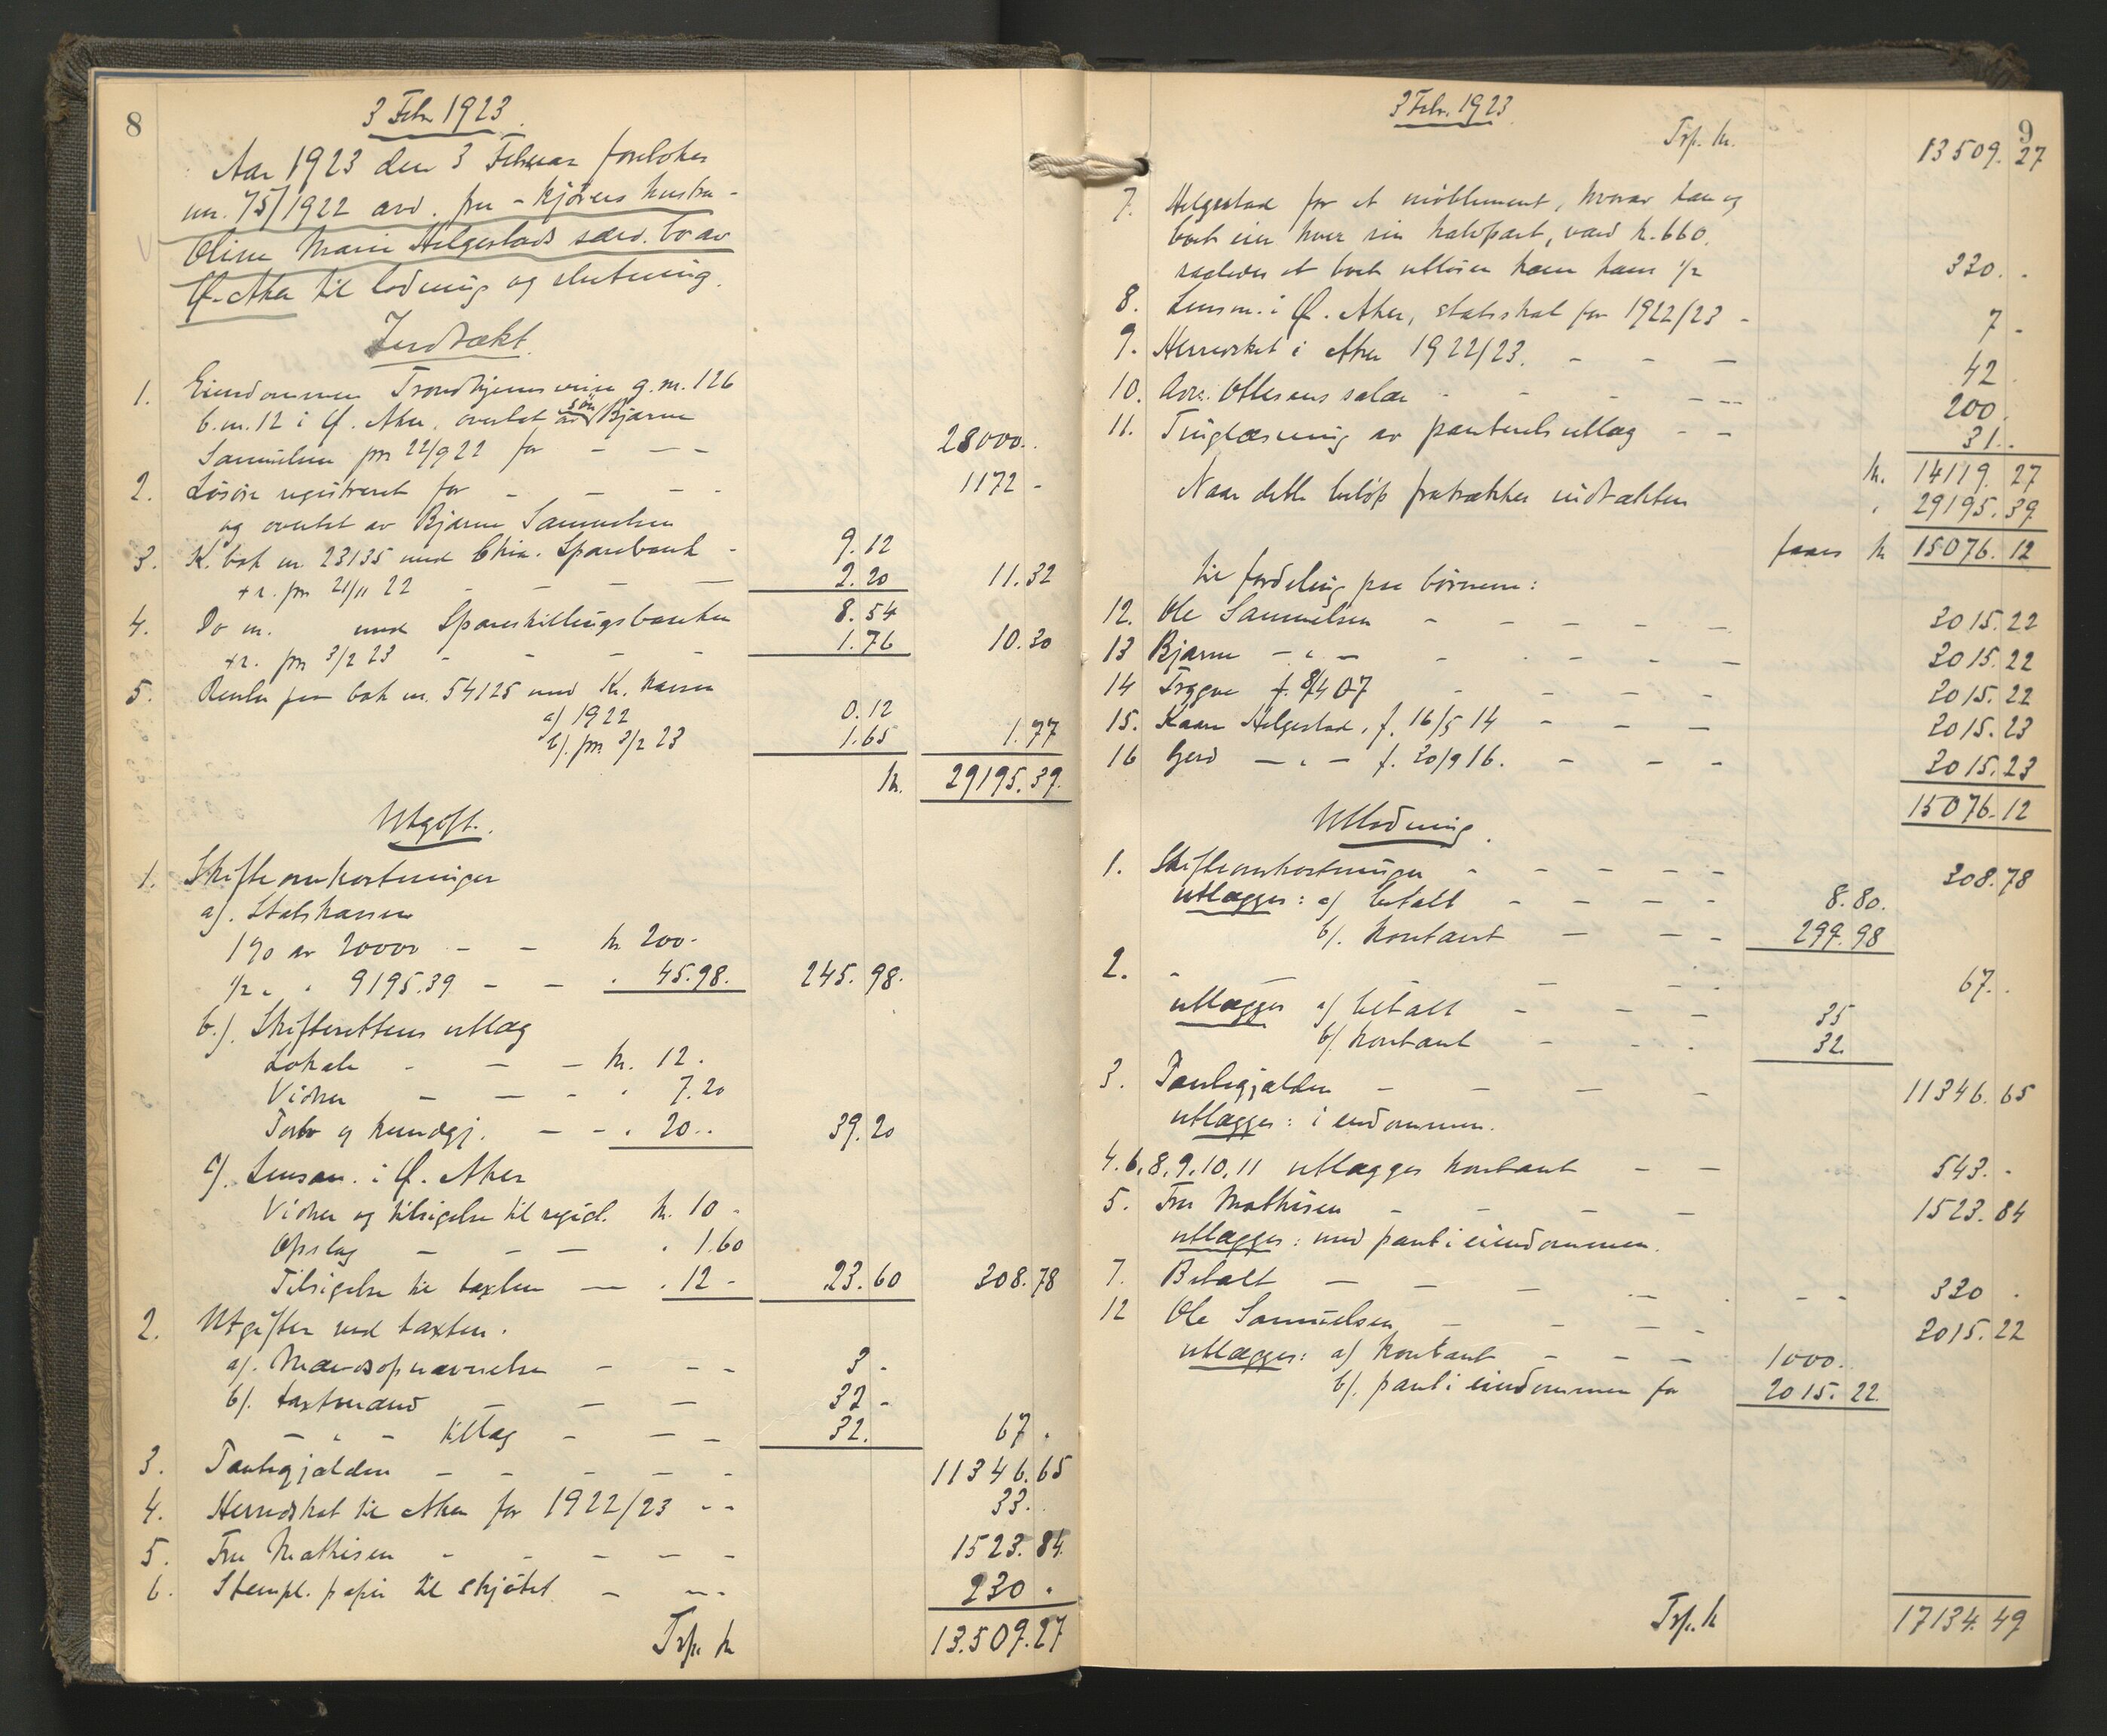 8
3 Febr 1923.
Aar 1923 den 3 Februar foretokes
nr. 75/1922 avd. fru - kjørers hustru -
Oline Marie Helgestads særd. bo av
Ø. Aker til lodning og slutning.
Indtækt.
1. Eiendommen Trondhjemsveien g.nr. 126
b.nr. 12 i Ø. Aker, overtat av søn Bjarne
Samuelsen pr 22/9 22 for - - - 28000.
2. Løsøre registreret for - - - - 1172 -
og overtat av Bjarne Samuelsen
3. K. bok nr. 23135 med Chra. Sparebank - 9.12
+ r. pr 21/11 22 - - - - 2.20 11.32
4. Do nr. med Spareskillingsbanken 8.54
+ r. pr 3/2 23 - - - - 1.76 10.30
5. Renter paa bok nr. 54125 med Kr. kassen
a) 1922 0.12
b). pr 3/2 23 1.65 1.77
kr. 29195.39.
Utgift.
1. Skifteomkostninger
a). Statskassen
1% av 20000 - - kr 200.-
1/2 " " 9195.39 - - " 45.98. 245.98.
b.) Skifterettens utlæg
Lokale - - - kr. 12.
Vidner - - - " 7.20
Porto og kundgj. - - " 20.. 39.20
c). Lensm. i Ø. Aker
Vidner og tilsigelse til regist. kr. 10 -
Opslag - - - " 1.60
Tilsigelse til taxten - " 12 - 23.60 308.78
2. Utgifter ved taxten.
a). Mændsopnævnelse - - - 3 -
b). taxtmænd - - - 32 -
- " - tillæg - - - 32. 67.
3. Pantegjælden - - - - - 11346.65
4. Herredskat til Aker for 1922/23 - - 33.
5. Fru Mathisen - - - - - 1523.84.
6. Stempl. papir til skjøtet - - - 230.
Trp. kr 13.509.27
9
3 Febr. 1923.
Trp. kr. 13509.27
7. Helgestad for et møblement, hvorav han og
boet eier hver sin halvpart, værd kr. 660.
saaledes at boet utløser ham hans 1/2 330. -
8. Lensm. i Ø. Aker, statsskat for 1922/23 - 7 -
9. Herredskat i Aker 1922/23. - - - 42
10. Adv. Ottesens salær - - - - - 200.
11. Tinglæsning av panteretsutlæg - - 31..
kr. 14119.27
Naar dette beløp fratrækkes indtækten " 29195.39
faaes kr 15076.12
til fordeling paa børnene:
12. Ole Samuelsen - - - - - 3015.22
13 Bjarne - " - - - - - - 3015.22
14 Trygve f. 8/4 07 - - - - 3015.22
15. Kaare Helgestad, f. 16/5 14 - - - 3015.23
16 Gerd - " - f. 20/9 16. - - - 3015.23
15076.12
Utlodning.
1. Skifteomkostninger - - - - - 308.78
utlægges: a) betalt - - - - 8.80.
b). kontant - - - 299.98
2. - - - - 67..
utlægges a) betalt - - - 35
b) kontant - - - 32.
3. Pantegjælden - - - - 11346.65
utlægges: i eiendommen.
4.6.8.9.10.11 utlægges kontant - - 543. -
5. Fru Mathisen - - - - 1523.84
utlægges: med pant i eiendommen.
7. Betalt - - - - - - 330.
12 Ole Samuelsen - - - - 3015.22
utlægges: a) kontant - - - 1000.
b). pant i eiendommen for 2015.22
Trp. kr 17134.49